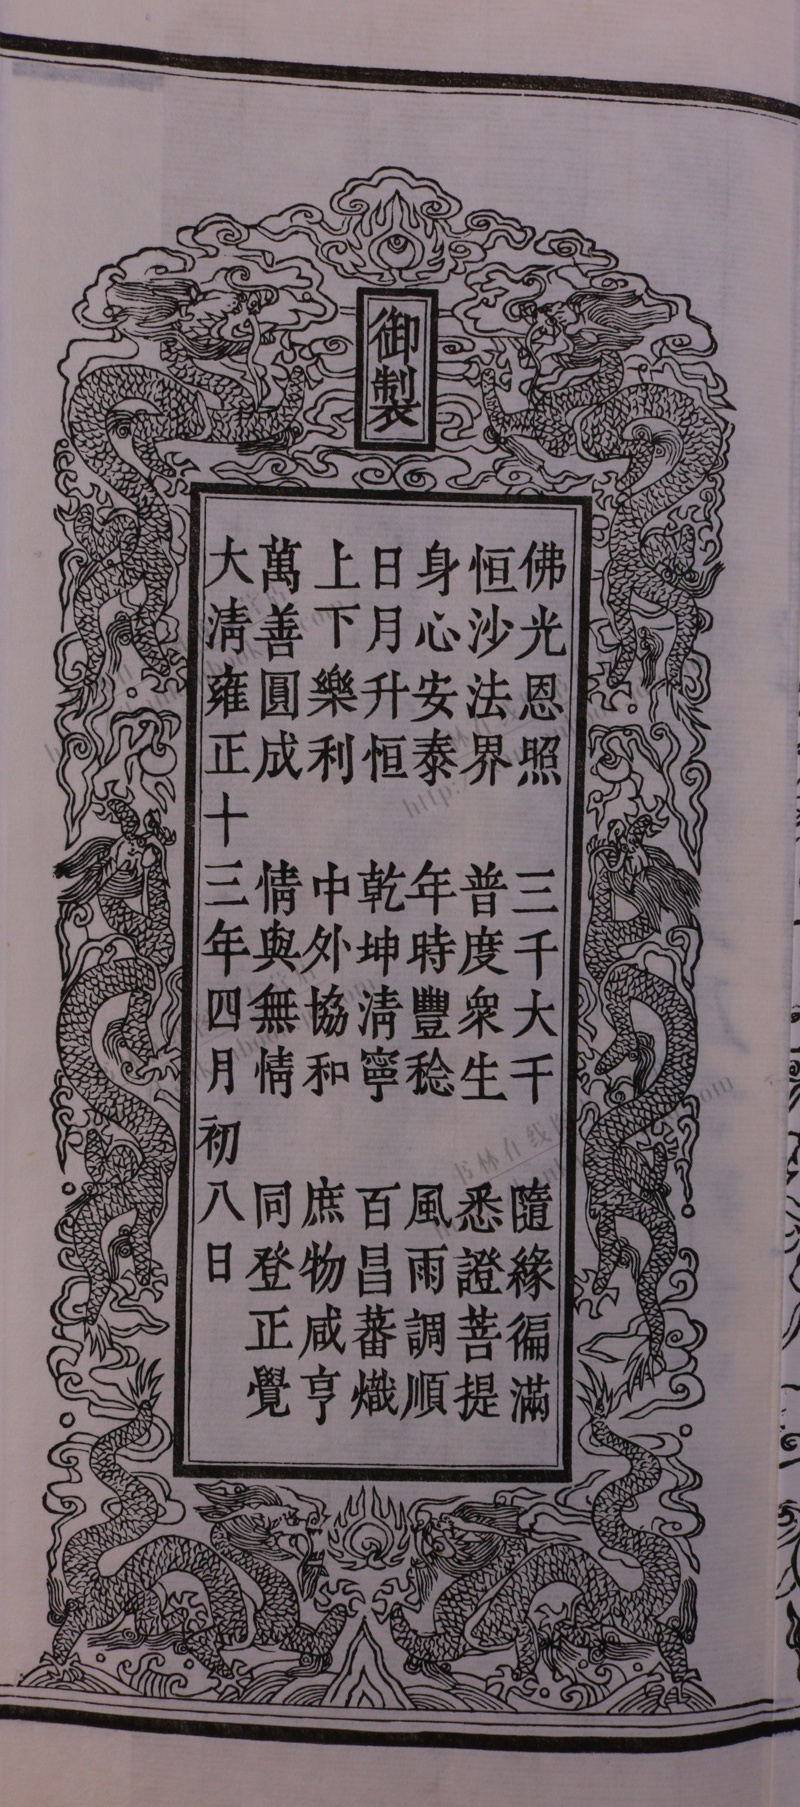 御製
佛光恩照 三千大千 隨緣徧滿
恒沙法界 普度衆生 悉證菩提
身心安泰 年時豐稔 風雨調順
日月升恒 乾坤清寧 百昌蕃熾
上下樂利 中外協和 庶物咸亨
萬善圓成 情與無情 同登正覺
大清雍正十三年四月初八日
书林在线